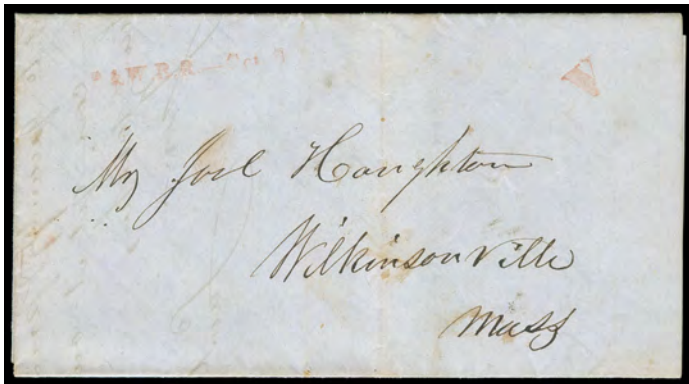 P & W R.R.—
Mr Joel Houghton
Wilkinsonville
Mass